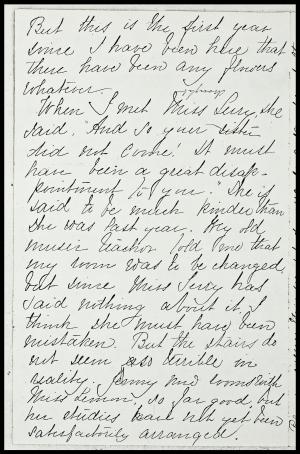 But this is the first year
since I have been here that
there have been any flowers
whatever.
When I met Miss she
said, "And so your sister
did not come! It must
have been a great disap-
pointment to you." She is
said to be much kinder than
she was last year. My old
music teacher told me that
my room was to be changed,
but since Miss has
said nothing about it, I
think she must have been
mistaken. But the stairs do
not seem so terrible in
reality. Jenny
Miss so far good but
her studies have not yet been
satisfactorily arranged.